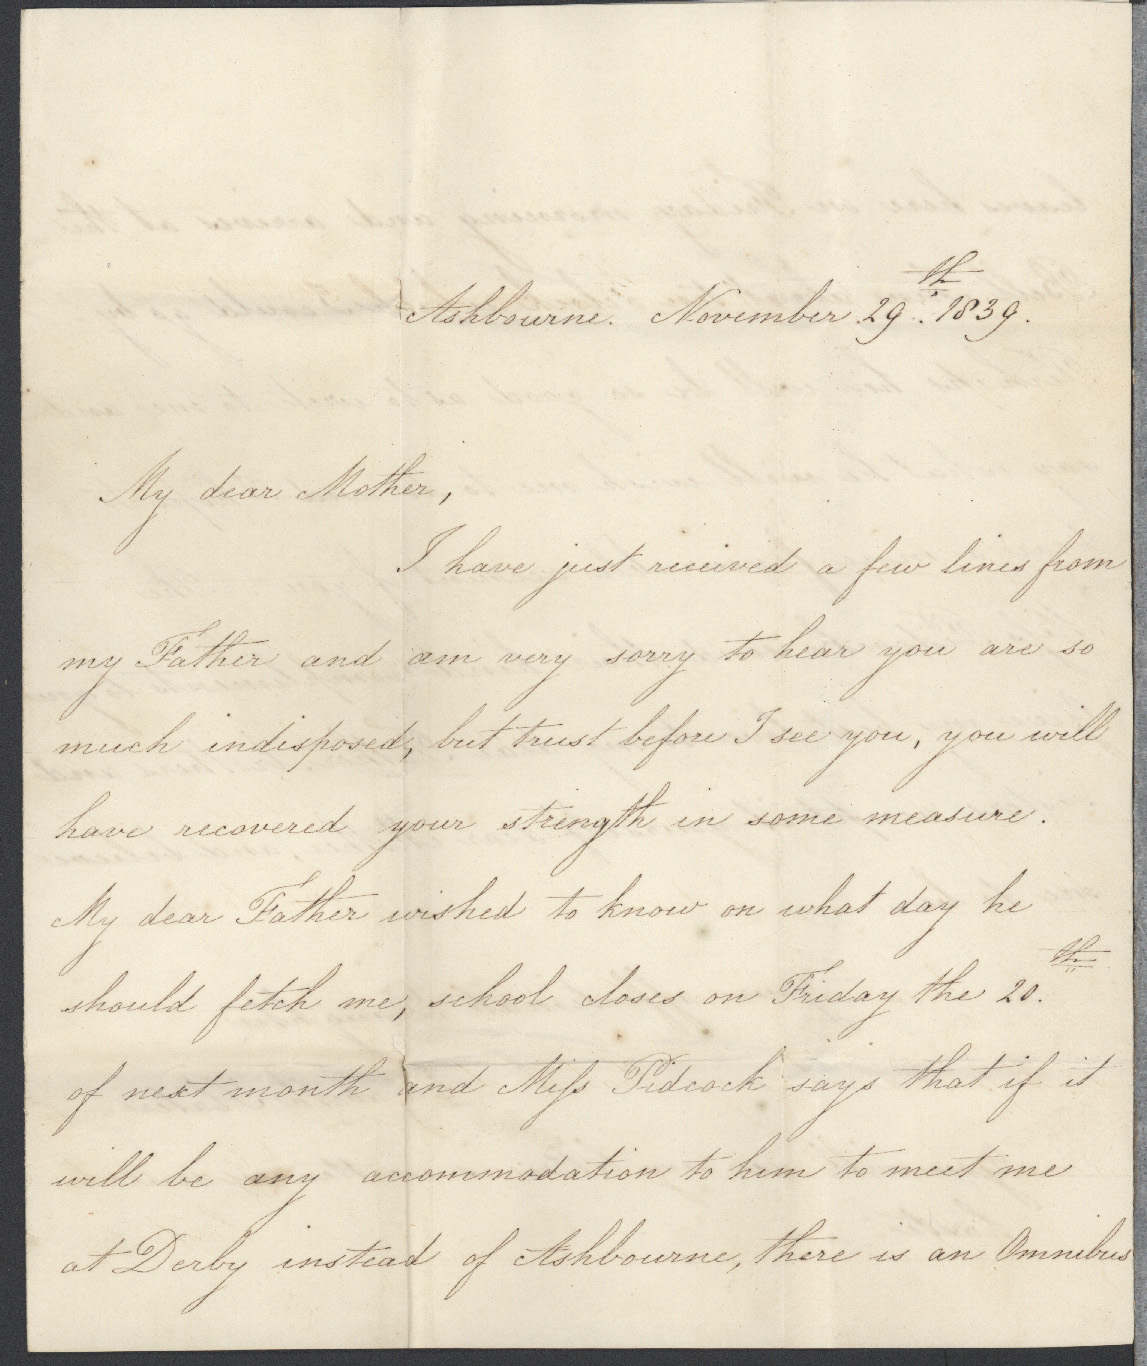 Ashbourne. November 29th. 1839.
My dear Mother,
I have just received a few lines from
my Father and am very sorry to hear you are so
much indisposed, but trust before I see you, you will
have recovered your strength in some measure.
My dear Father wished to know on what day he
should fetch me, school closes on Friday the 20.th
of next month and Miſs Pidcock says that if it
will be any accommodation to him to meet me
at Derby instead of Ashbourne, there is an Omnibus